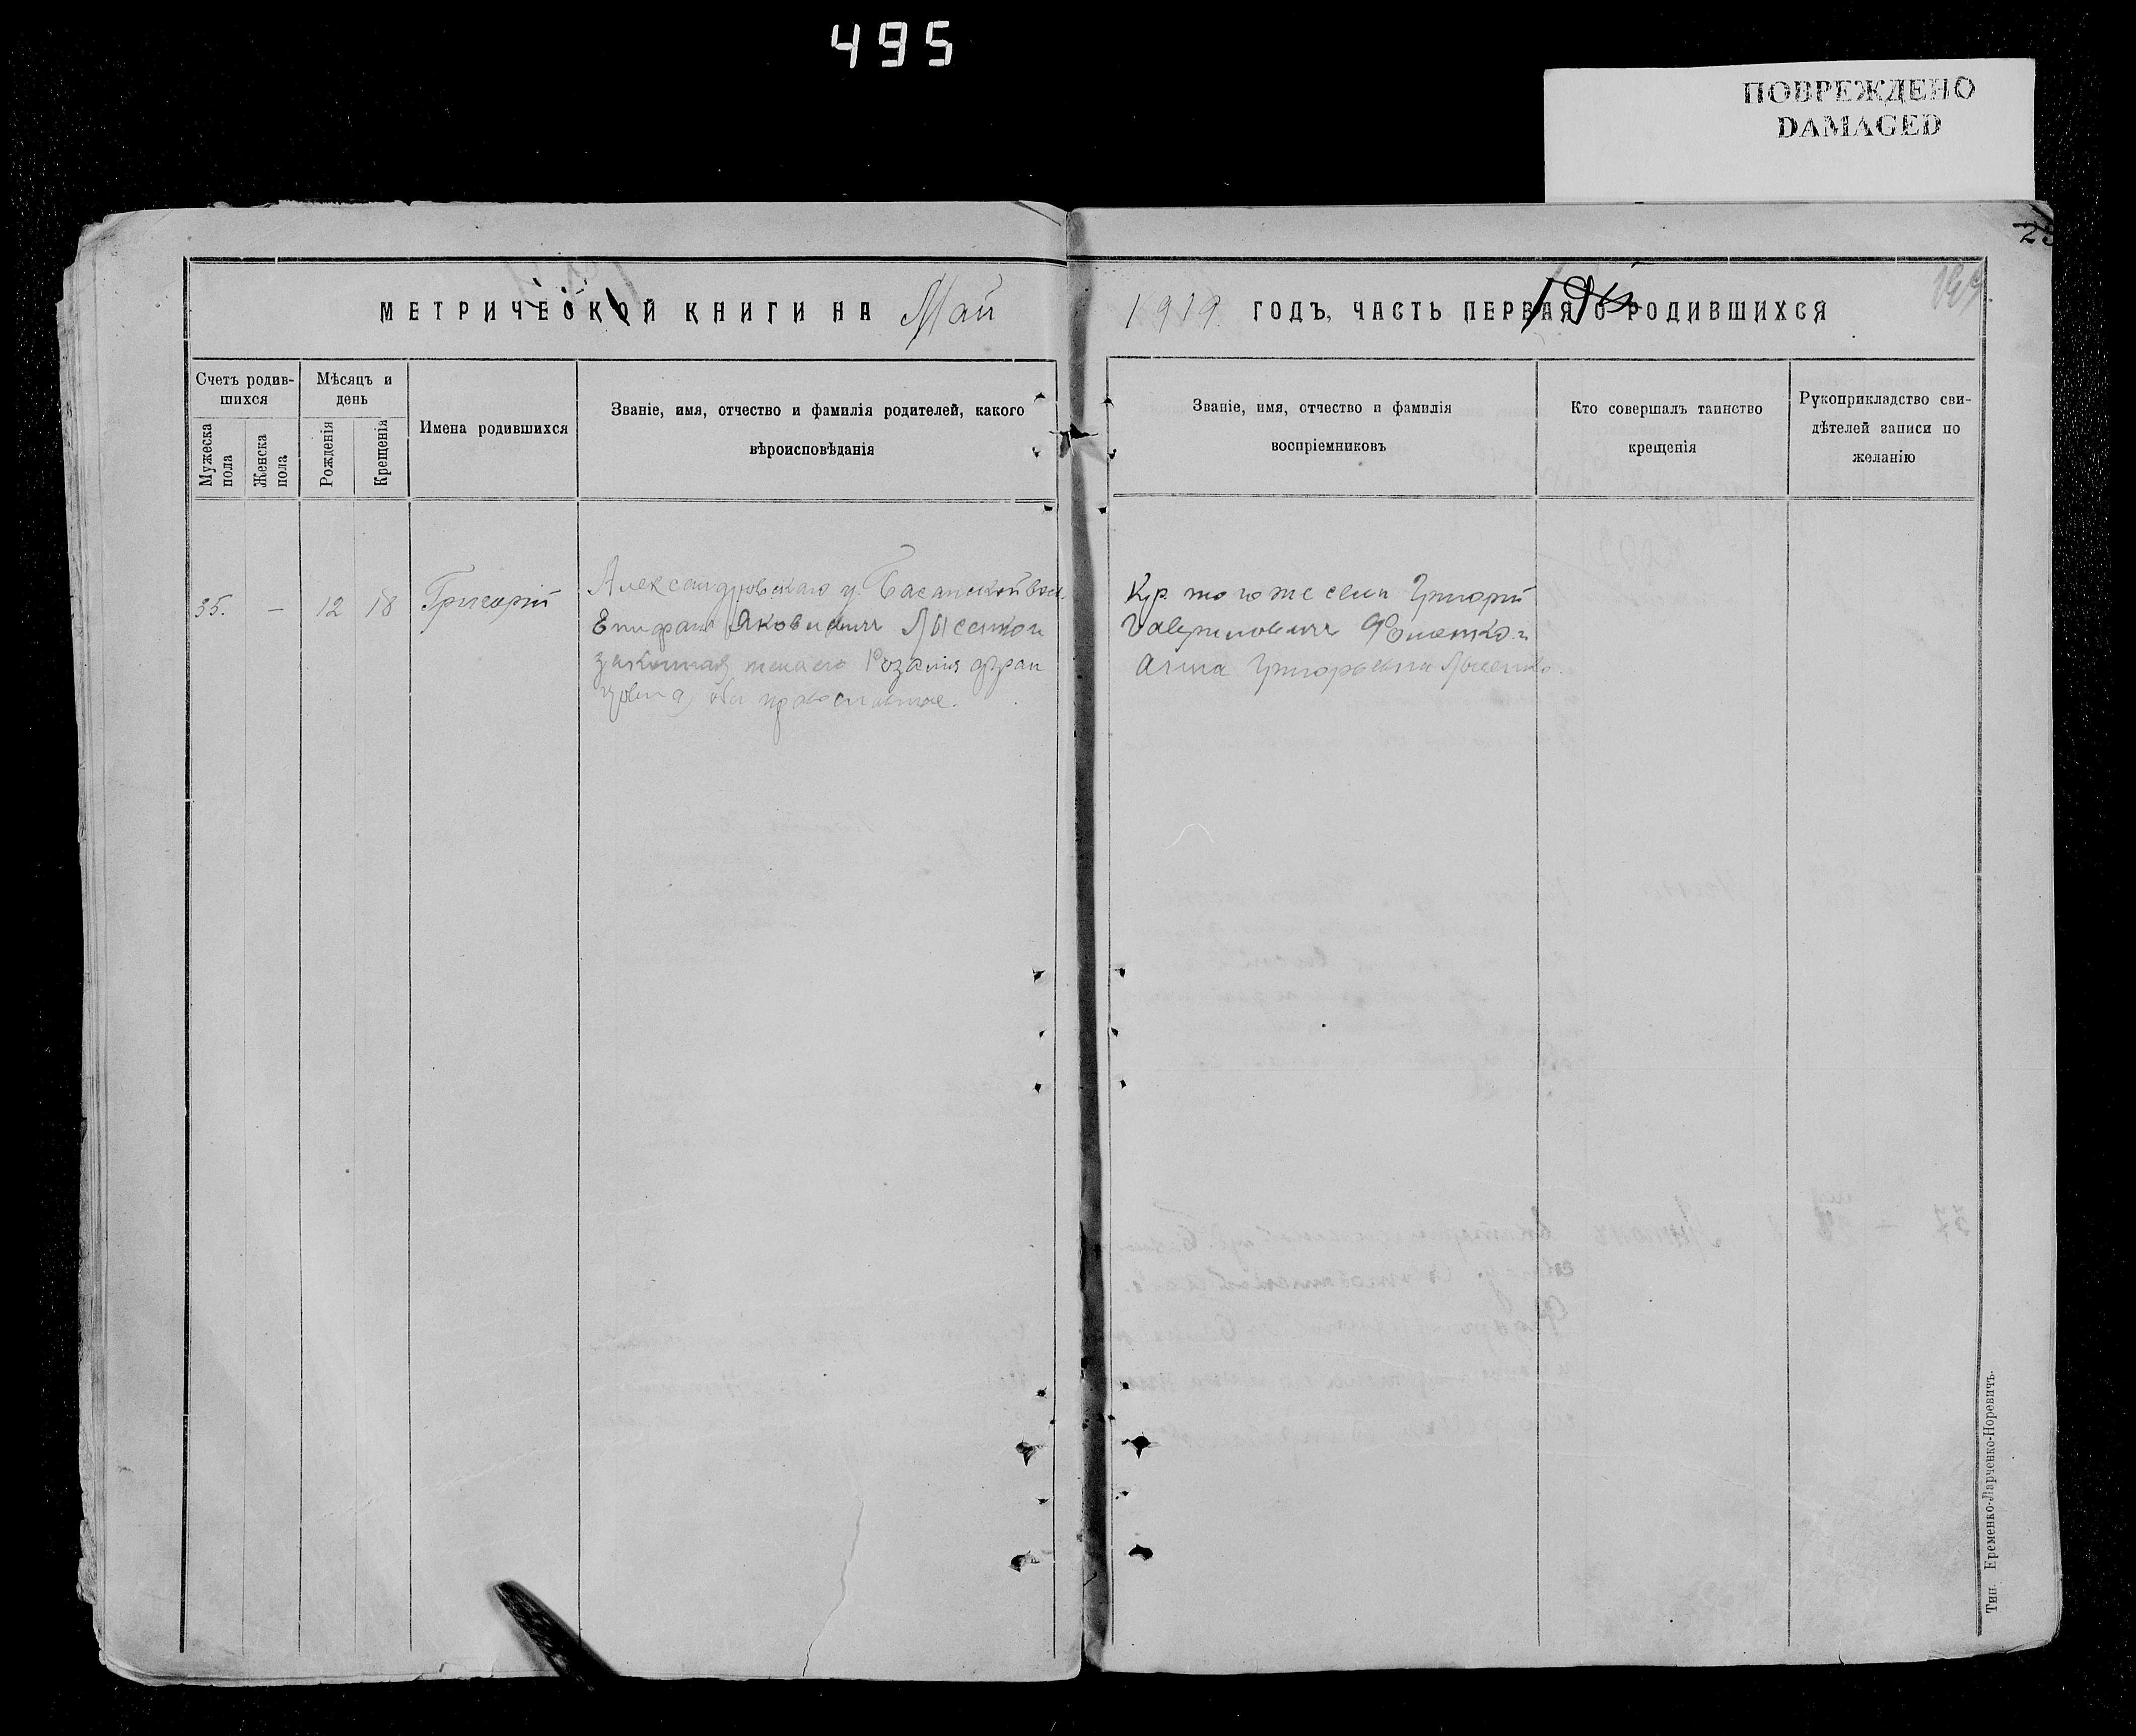 495
ПОВРЕЖДЕНО
DAMAGED
МЕТРИЧЕСКОЙ КНИГИ НА Май
1919 ГОДЪ, ЧАСТЬ ПЕРВАЯ О РОДИВШИХСЯ
Счетъ родив-
шихся
Мужеска
пола
Женска
пола
Мѣсяцъ и
день
Рожденія
Крещенія
Имена родившихся
Званіе, имя, отчество и фамилія родителей, какого
вѣроисповѣданія
Званіе, имя, отчество и фамилія
воспріемниковъ
Кто совершалъ таинство
крещенія
Рукоприкладство сви-
дѣтелей записи по
желанію
35. — 12 18 Григорій
Александровскаго у. Басанской вол.
Епифанъ Яковичъ Лысенко и
законная жена его Розалія Фран
цовна, оба православные.
Кр. того же села Григорій
Фоменко и
Анна Григорьевна Лысенко.
Тип. Еременко-Ларченко-Норевичъ.